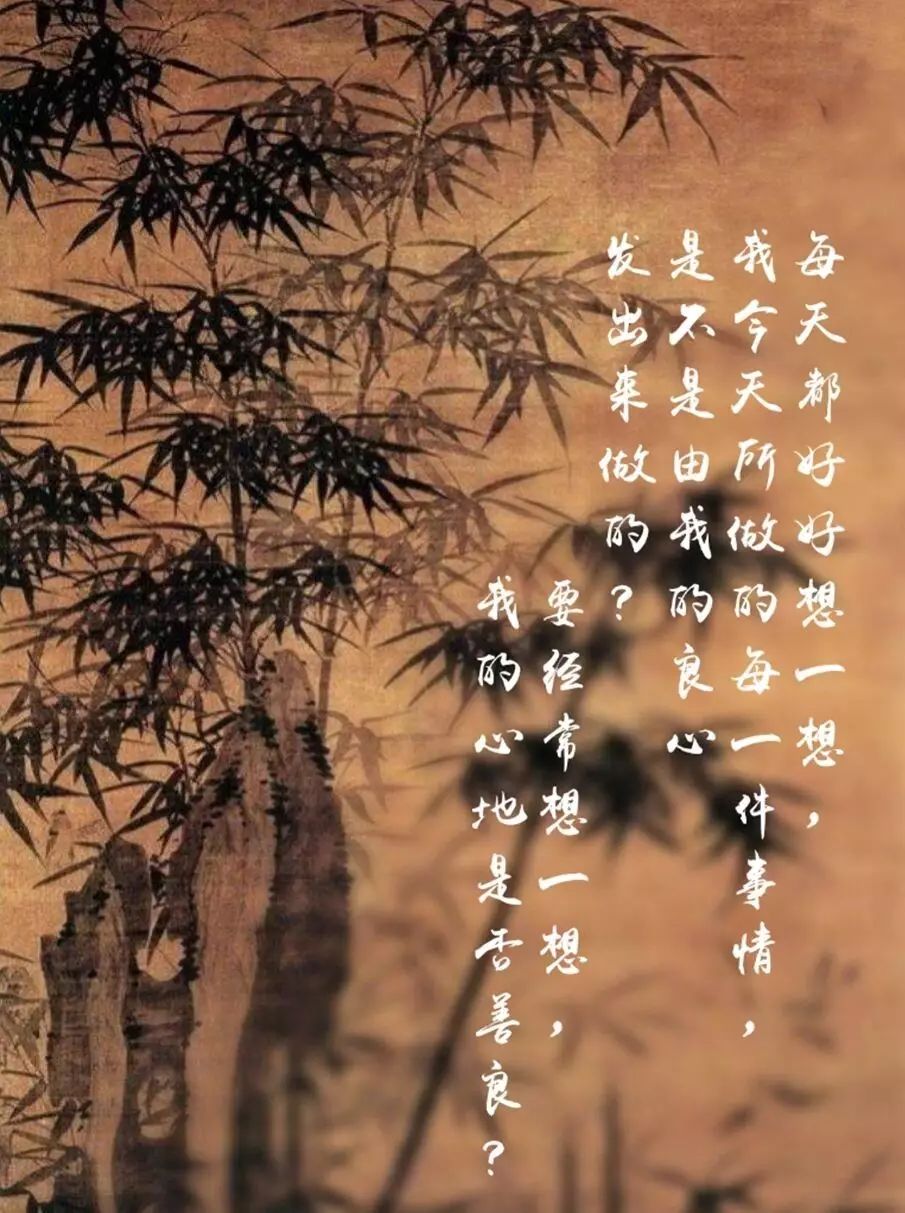 每天都好好想一想，
我今天所做的每一件事情，
是不是由我的良心
发出来做的？
要经常想一想，
我的心地是否善良？